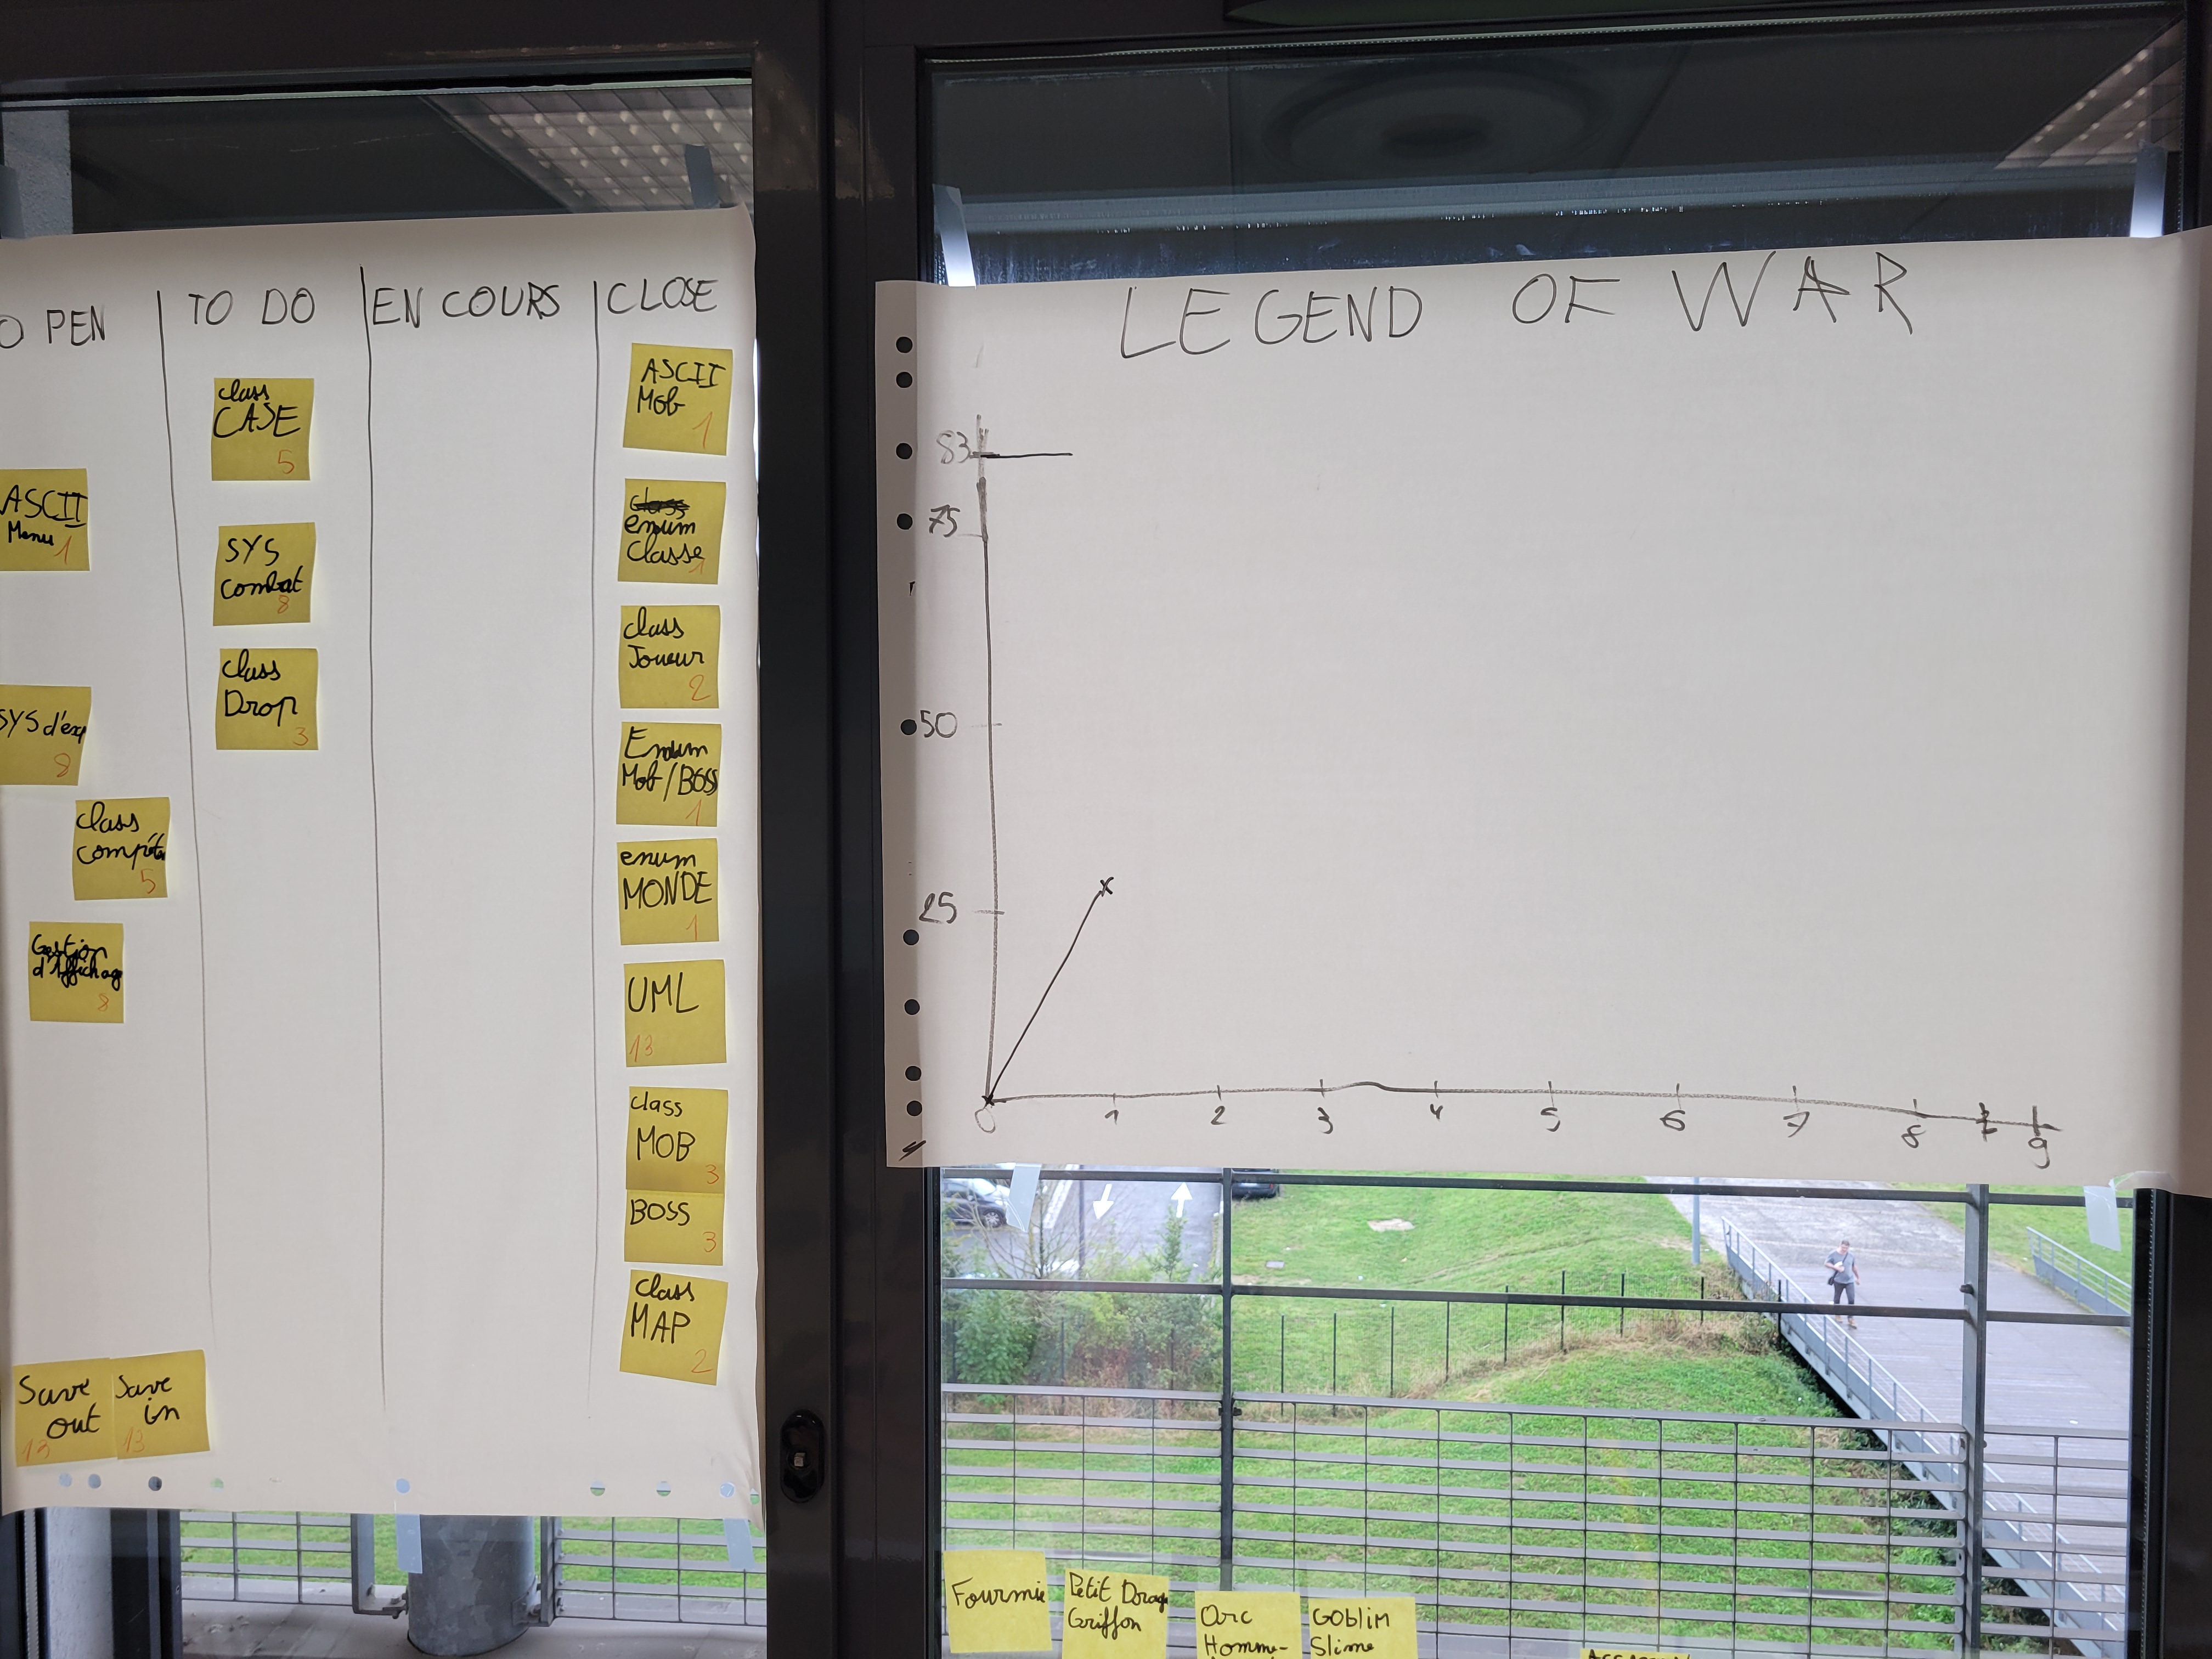 O PEN
TO DO
EN COURS
CLOSE
ASCII
Menu
1
SYS d'exp
8
class
5
Gestion
d'Affichage
8
Save
out
13
Save
in
13
class
CASE
5
SYS
combat
8
class
Drop
3
ASCII
Mob
1
class
enum
Classe
1
class
Joueur
2
Enum
Mob/BOSS
1
enum
MONDE
1
UML
13
class
MOB
3
BOSS
3
class
MAP
2
LEGEND OF WAR
83
75
50
25
0 1 2 3 4 5 6 7 8 9
Fourmie
Petit Drag
Griffon
Orc
Homme-
GOBlin
Slime